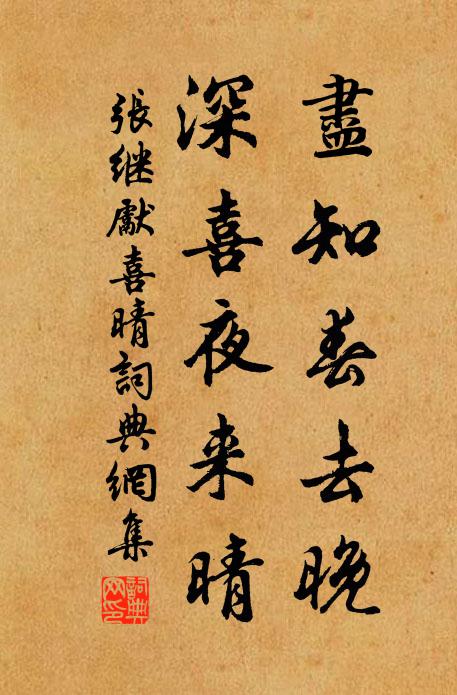 盡知春去晚
深喜夜来晴
張继獻喜晴詞典網集
詞典網印